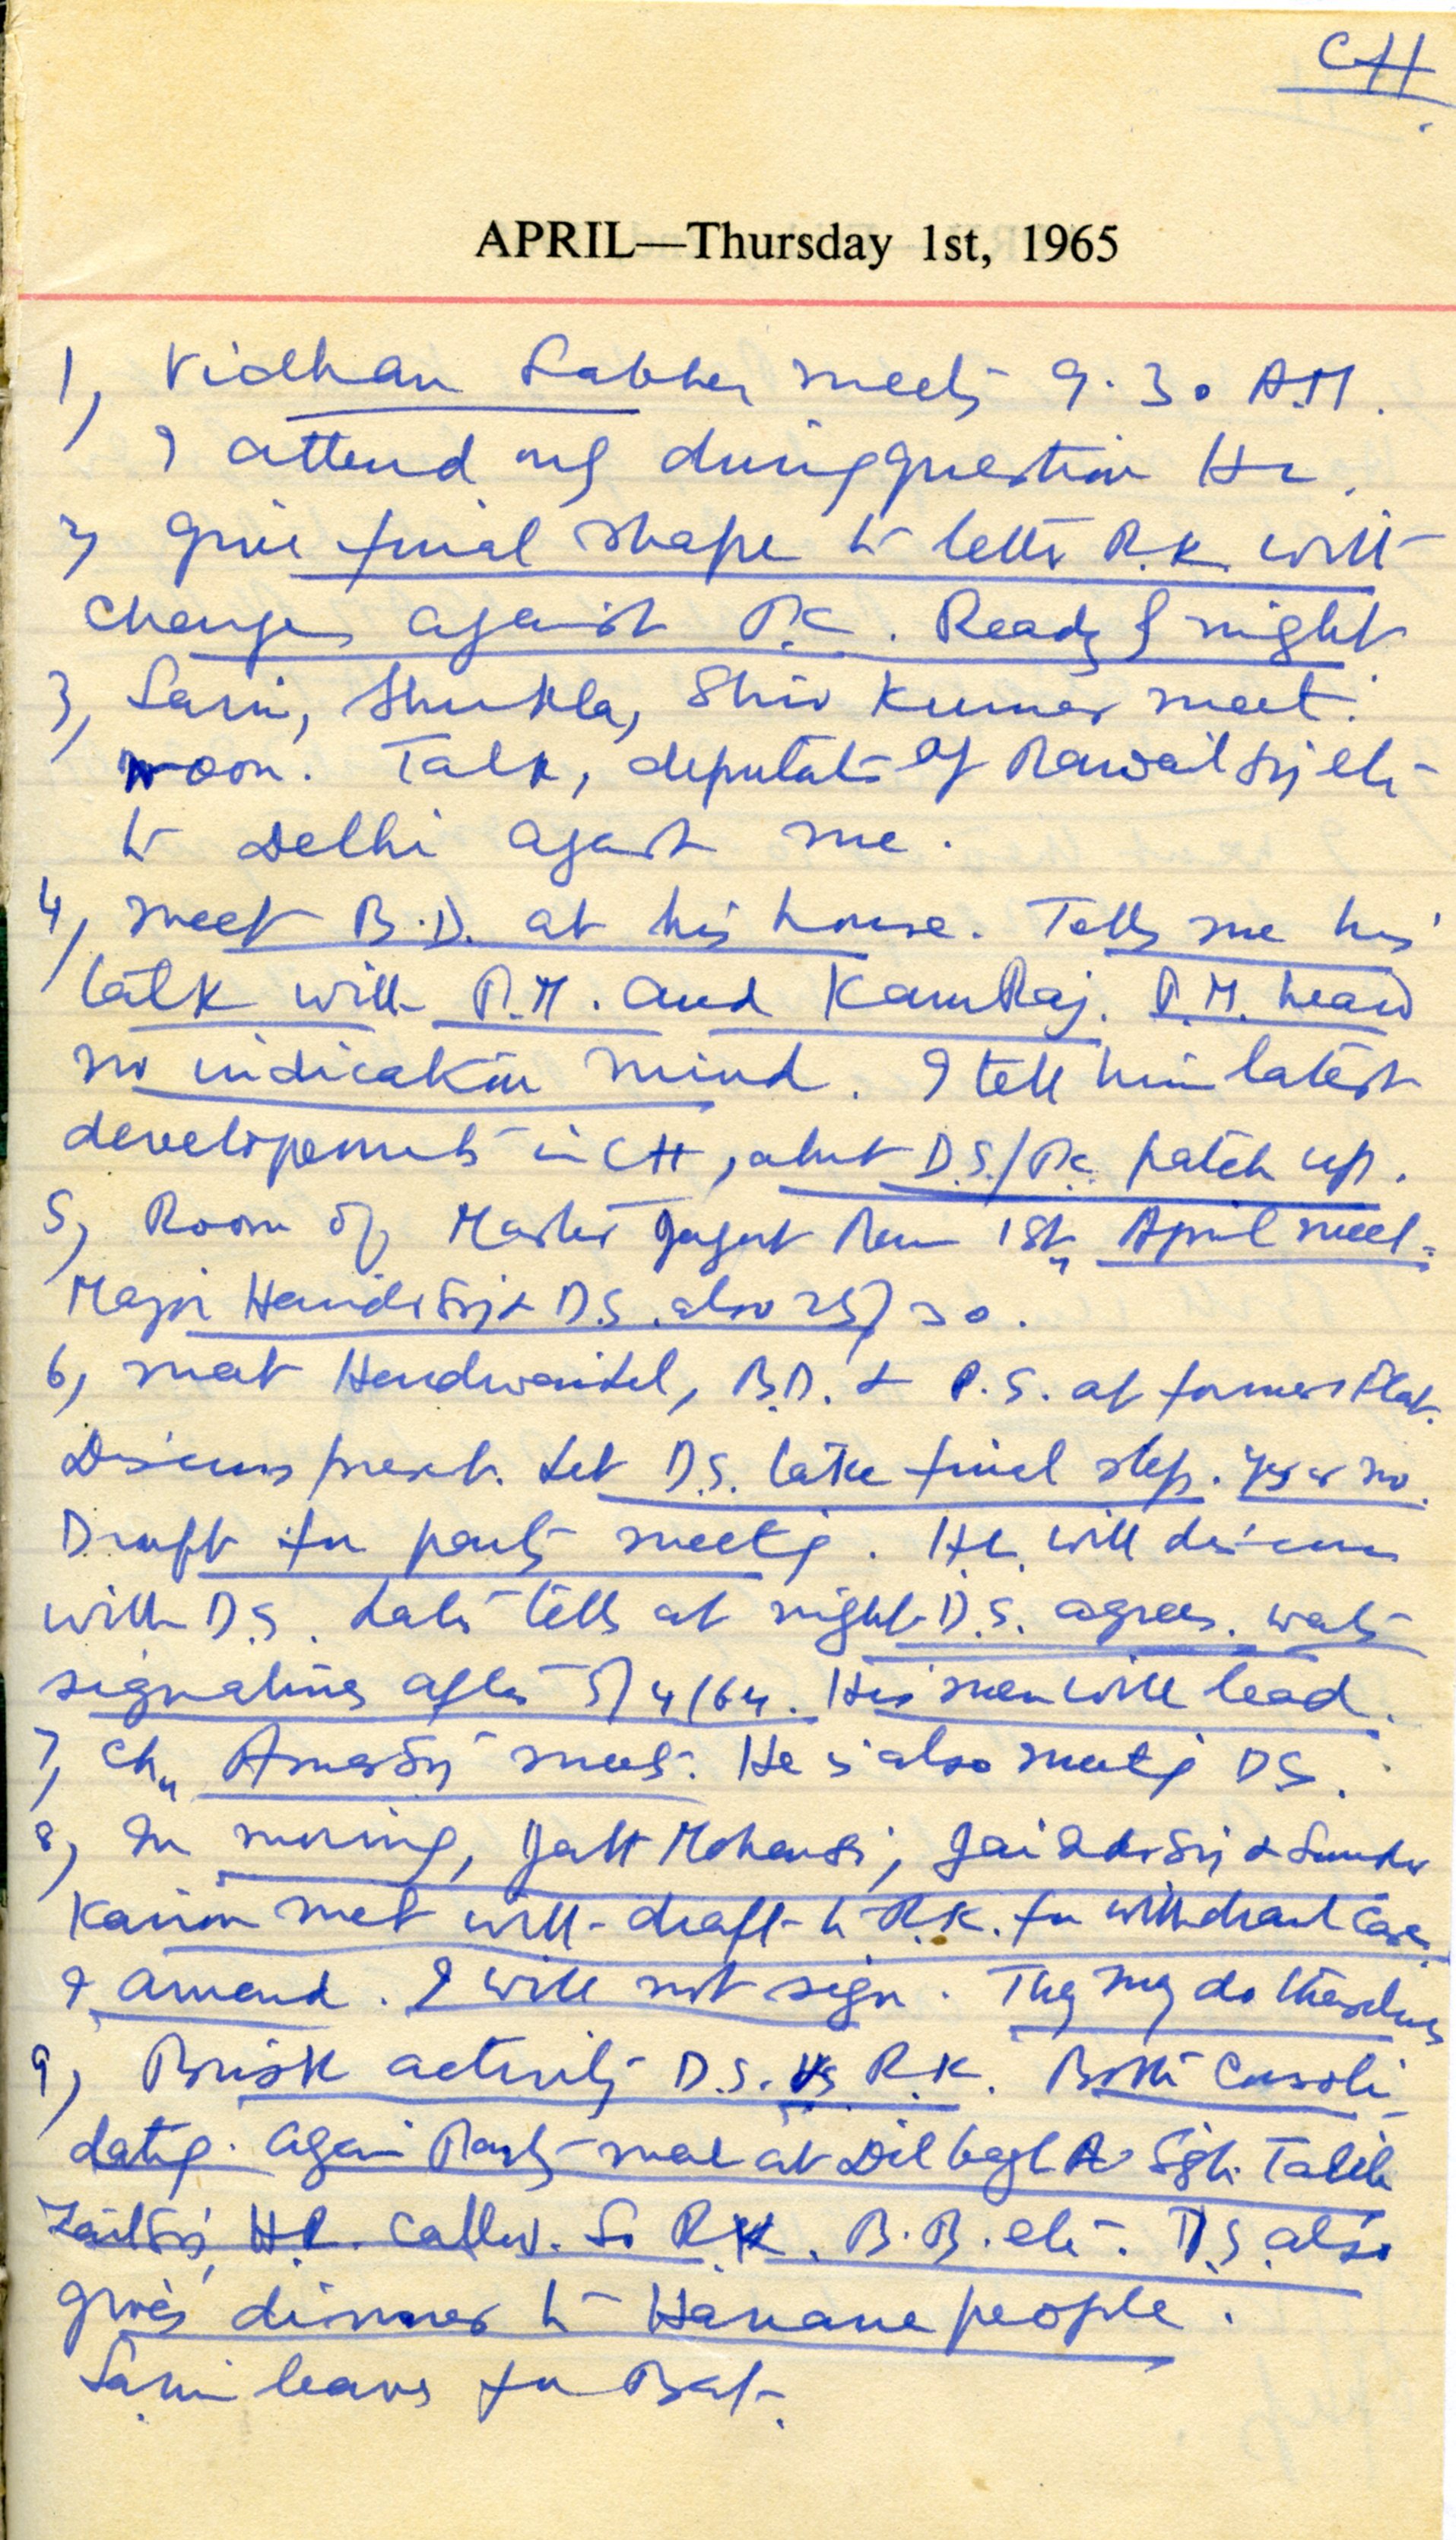 CH
APRIL—Thursday 1st, 1965
1, Vidhan Sabha meets 9.30 A.M.
I attend only during question Hr.
2, give final shape to letter R.K. with
changes against P.C. Ready & night
3, Saini, Shukla, Shiv Kumar meet.
noon. Talk, deputatn of Rawail Sij etc
to Delhi agast me.
4, meet B.D. at his house. Tells me his
talk with P.M. and KamRaj. P.M. heard
no indication mind. I tell him latest
developements in CH, about D.S./P.C. patch up.
5, Room of Master Jagat Ram 1st April meet.
Major Harinder Sij & D.S. also 25/30.
6, meet B.D. & P.S. at former's Flat.
Discuss Let D.S. take final step. Yes or no.
Draft for party meetig. He will discuss
with D.S. Late tells at night D.S. agrees. wats
signatures after 5/4/64. His men will lead.
7, Ch. Amar Sij meets. He is also meetig DS.
8, In morning, Jatt Mohan Sij, Jai Inder Sij & Sunder
Kairon met with draft to R.K. for withdraul case
& amend. I will not sign. They may do themselves
9, Brisk activity D.S. Vs R.K. Both Consoli-
datig. again Party meal at Dilbagh Sigh. Talib
Zail Sij, H.R. called. So R.K., B.B. etc. D.S. also
gives dinner to Hariana people.
Saini leaves for Bat.